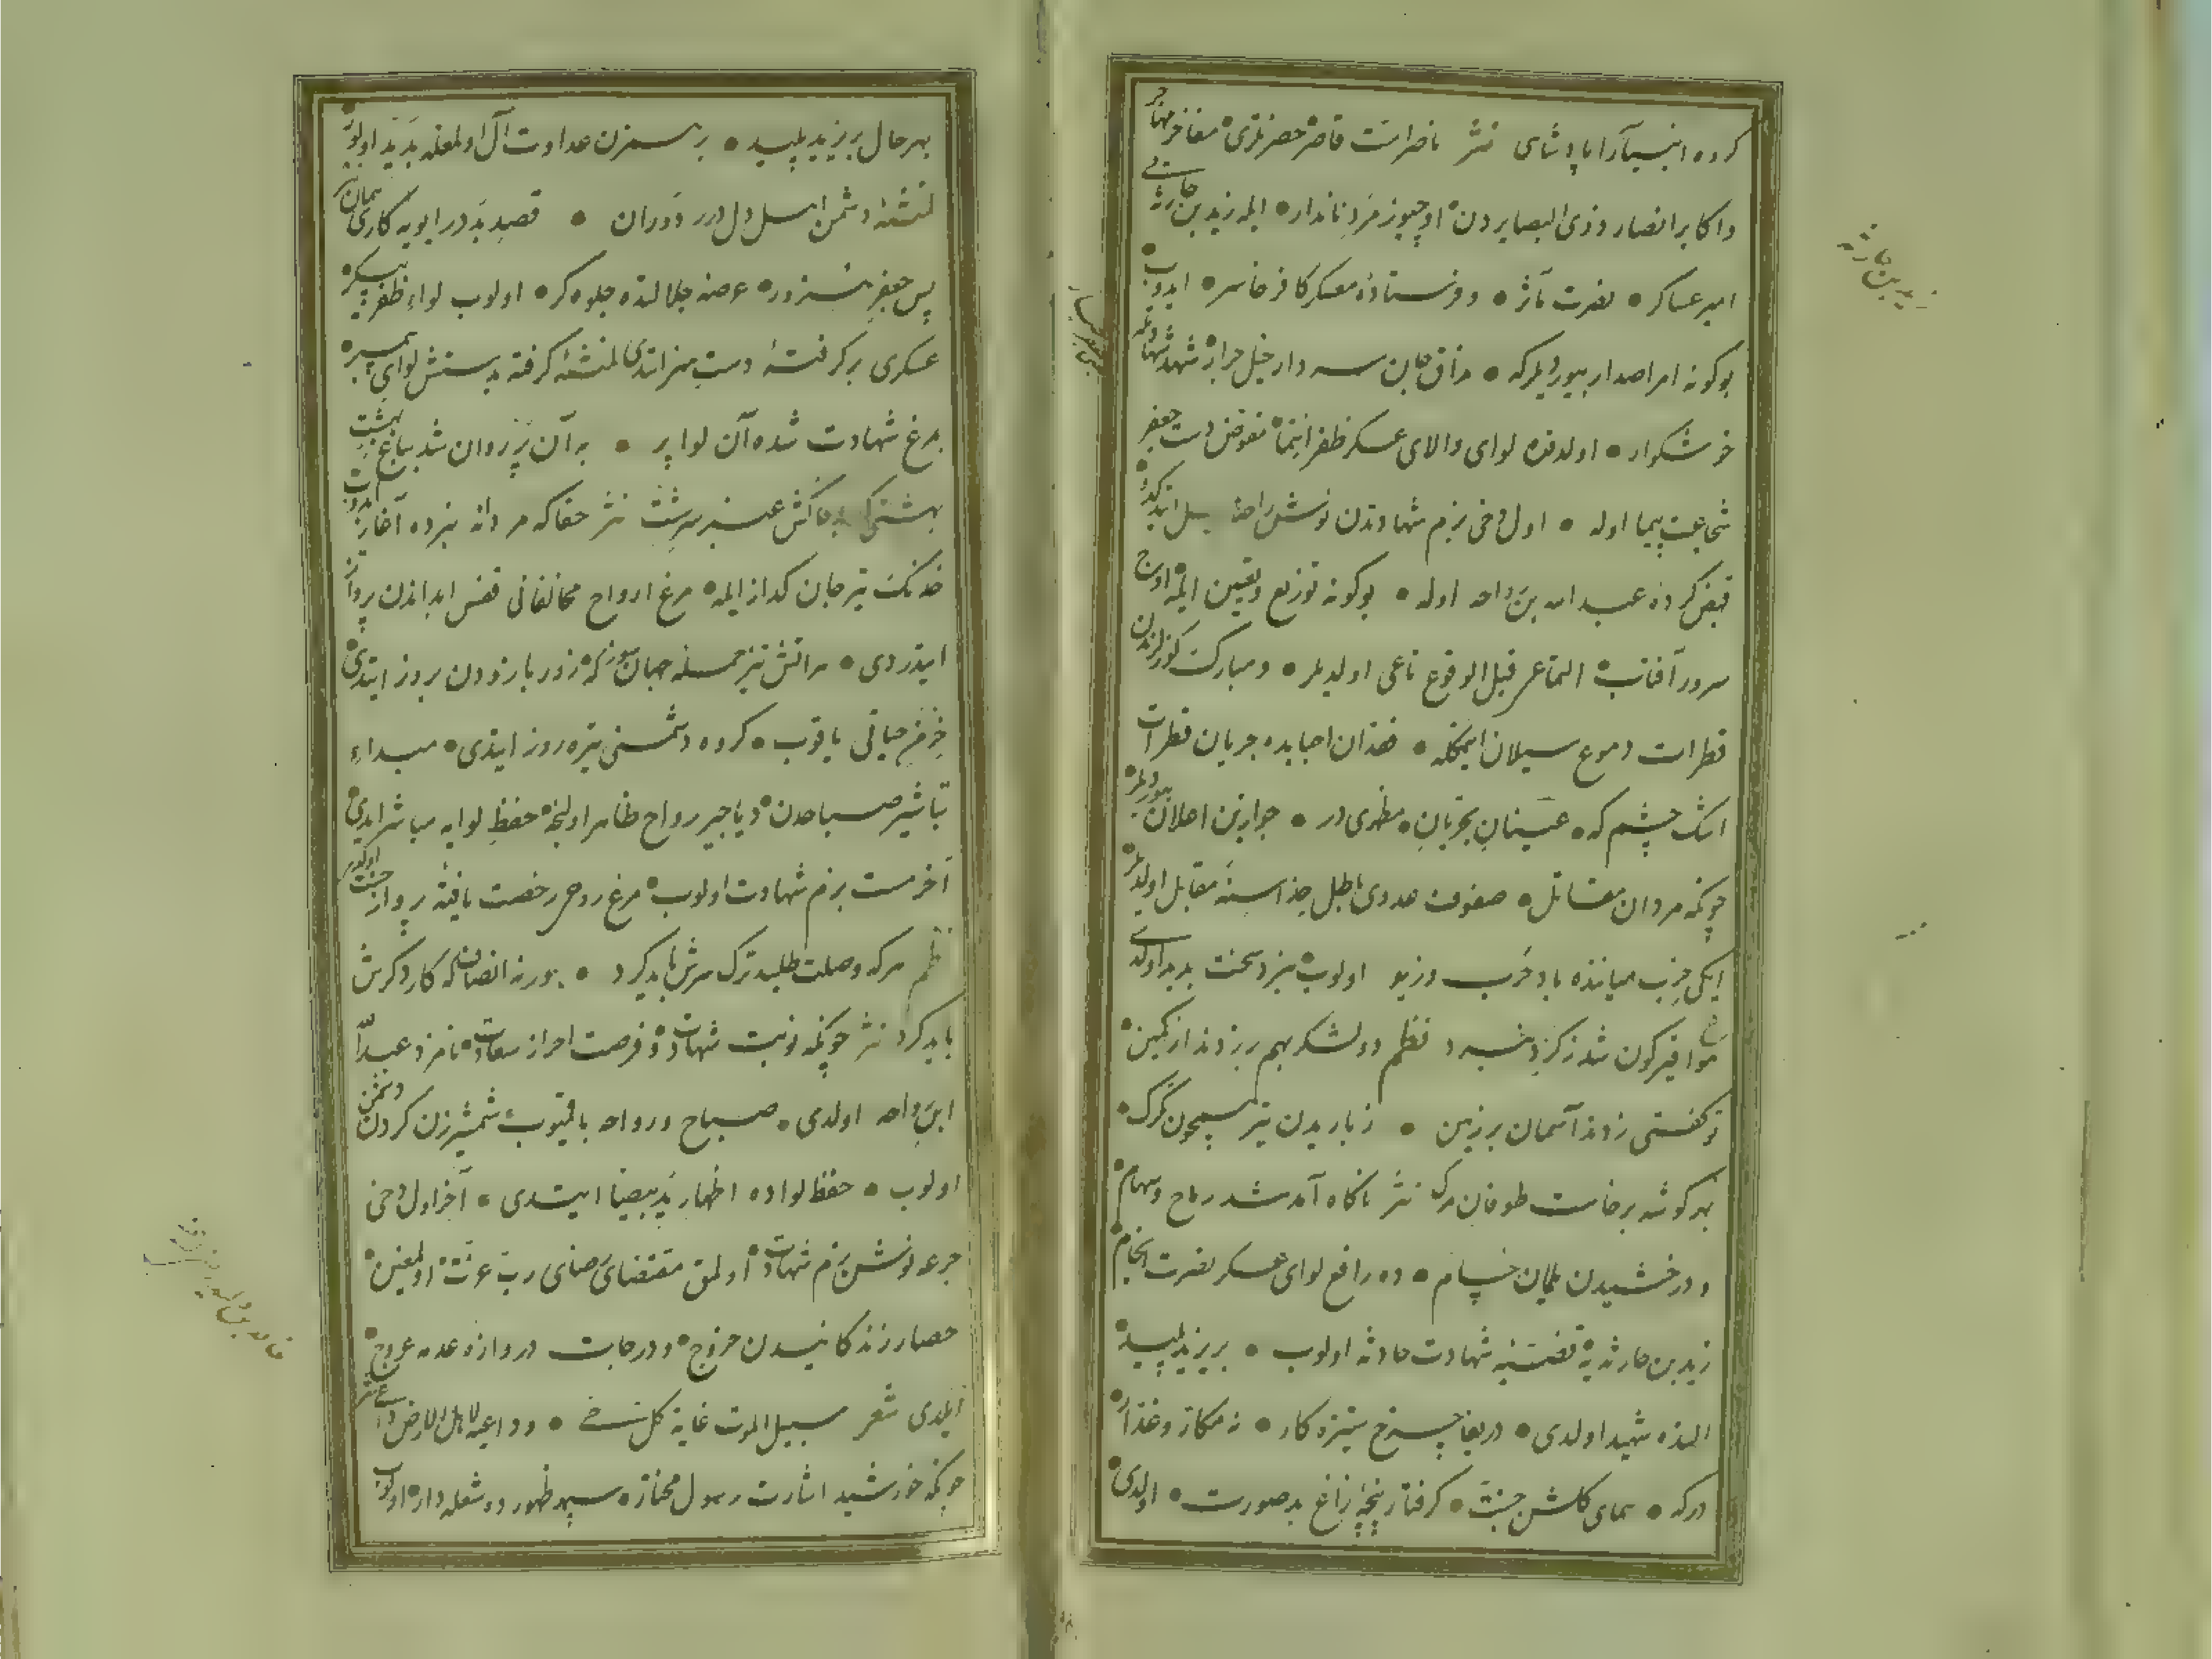 كروه انبيا آرا پادشاى نثر ناضرات قاصر حضرتلرى مفاخر مهاجرين
و اكابر انصار و ذى البصايردن اوچيوز مرد نامدار ايله زيد بن حارثه يى
امير عساكر نصرت مآثر و فرستاده معسكر كافر خاسر ايدوب
بوكونه امر اصدار بيورديلركه مذاق جان سردار خيل جرار شهد شهادتله
خوشكوار اولدقده لواى والاى عسكر ظفر انتما مفوض دست جعفر
شجاعت پيما اوله اول دخى بزم شهادتدن نوش ايتدكده
قبض كرده عبد الله بن رواحه اوله بوكونه توزيع و تعيين ايله اوج
سرور آفتاب التماعر قبل الوقوع ناعى اولديلر و مبارك كوزلرندن
قطرات دموع سيلان ايتمكله فقدان احباده جريان قطرات
اشك چشم كه عينان تجريان مظهرى در جوازين اعلان بيورديلر
چونكه مردان مقاتل صفوف عدوى باطل جذاسنه مقابل اولديلر
ايكى حزب ميانده باد حرب وزيو اولوب نبرد سخت بديد اولدى
هوا قيركون شد ز كرد نبرد نظم دو لشكر بهم بر زدند از كمين
تو كفتى زدند آسمان بر زمين ز باريدن تير همچون تكرك
بهر كوشه برخاست طوفان مرك نثر ناكاه آمد شد رماح و سهام
و درخشيدن يمان حسام ده رافع لواى عسكر نصرت انجام
زيد بن حارثه يه قضيه شهادت حادثه اولوب بر يزيد پليد
النده شهيد اولدى دريغا چرخ ستيزه كار نه مكار و غدار
دركه هماى كلشن جنت كرفتار پنجه زاغ بد صورت اولدى
زيد بن حارثه
بهر حال بر يزيد پليد بر سمزن عداوت آل اولمغله بديد اولور
دشمن اهل دل در دوران قصد بد در ايويه كارى همان
پس جعفر عرصه جلالنده جلوه كر اولوب لواء ظفر پيكر
عسكرى بر كرفته دست هنر ايتدى كرفته بدستش لواى
مرغ شهادت شده آن لوا پر به آن پر روان شد بباغ بهشت
عنبر سرشت نثر حقا كه مردانه نبرده آغاز ايدوب
خدنك تير جان كداز ايله مرغ ارواح مخالفانى قفس ابداندن پرواز
ايتدردى هر آتش تيز حمله جهان سوز كه زور بازودن بروز ايتدى
خرمن حياتى ياقوب كروه دشمنى تيره روز ايتدى مبداء
تباشير صباحدن دياجير رواح ظاهر اولنجه حفظ لوايه مباشر ايدى
آخر مست بزم شهادت اولوب مرغ روحى رخصت يافته پرواز جنت اولدى
نظم هركه وصلت طلبد ترك سرش بايد كرد ورنه انصاف كه كار دكرش
بايد كرد نثر چونكه نوبت شهادت و فرصت احراز سعادت نامزد عبد الله
ابن رواحه اولدى صباح و رواحه باقيوب شمشيرزن كردن دشمن
اولوب حفظ لواده اظهار يد بيضا ايتدى آخر اول دخى
جرعه نوش بزم شهادت اولمق مقتضاى رضاى رب عزت اولمغين
حصار زندكانيدن خروج و درجات دروازه عدمه عروج
ايلدى شعر سبيل الموت غاية كل حي وداعيه لاهل الارض داعي نثر
چونكه خورشيد اشارت رسول مختار سپهر ظهورده شعله دار اولوب